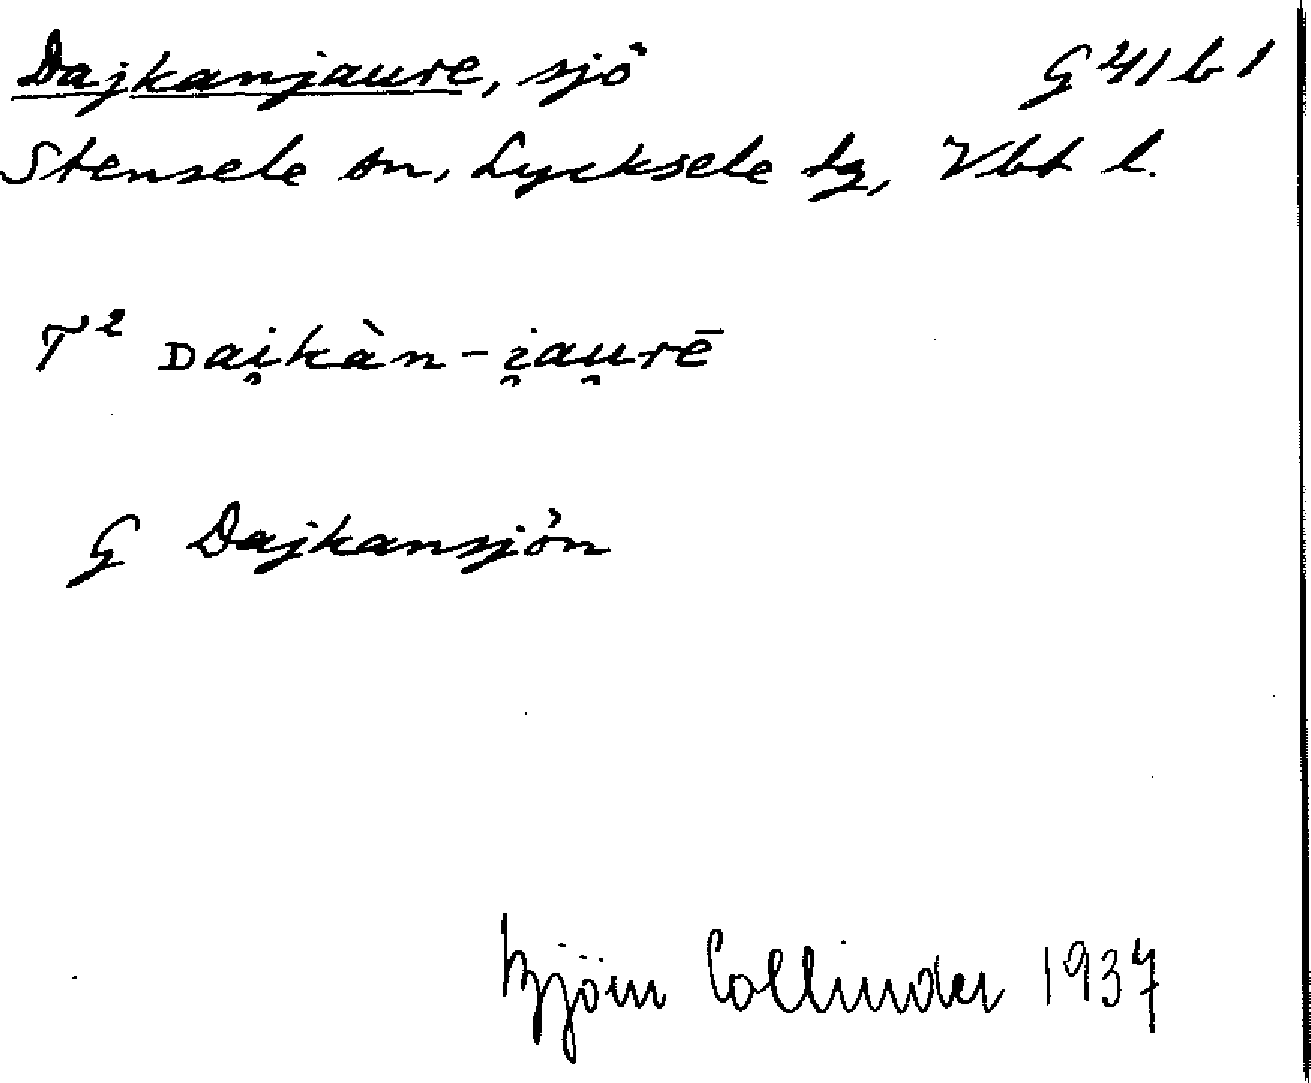 Dajkanjaure, sjö G 41 b 1
Stensele sn, Lycksele tg, Vbt l.
T² ᴅai̯kàn-i̯au̯rē
G Dajkansjön
Björn Collinder 1937